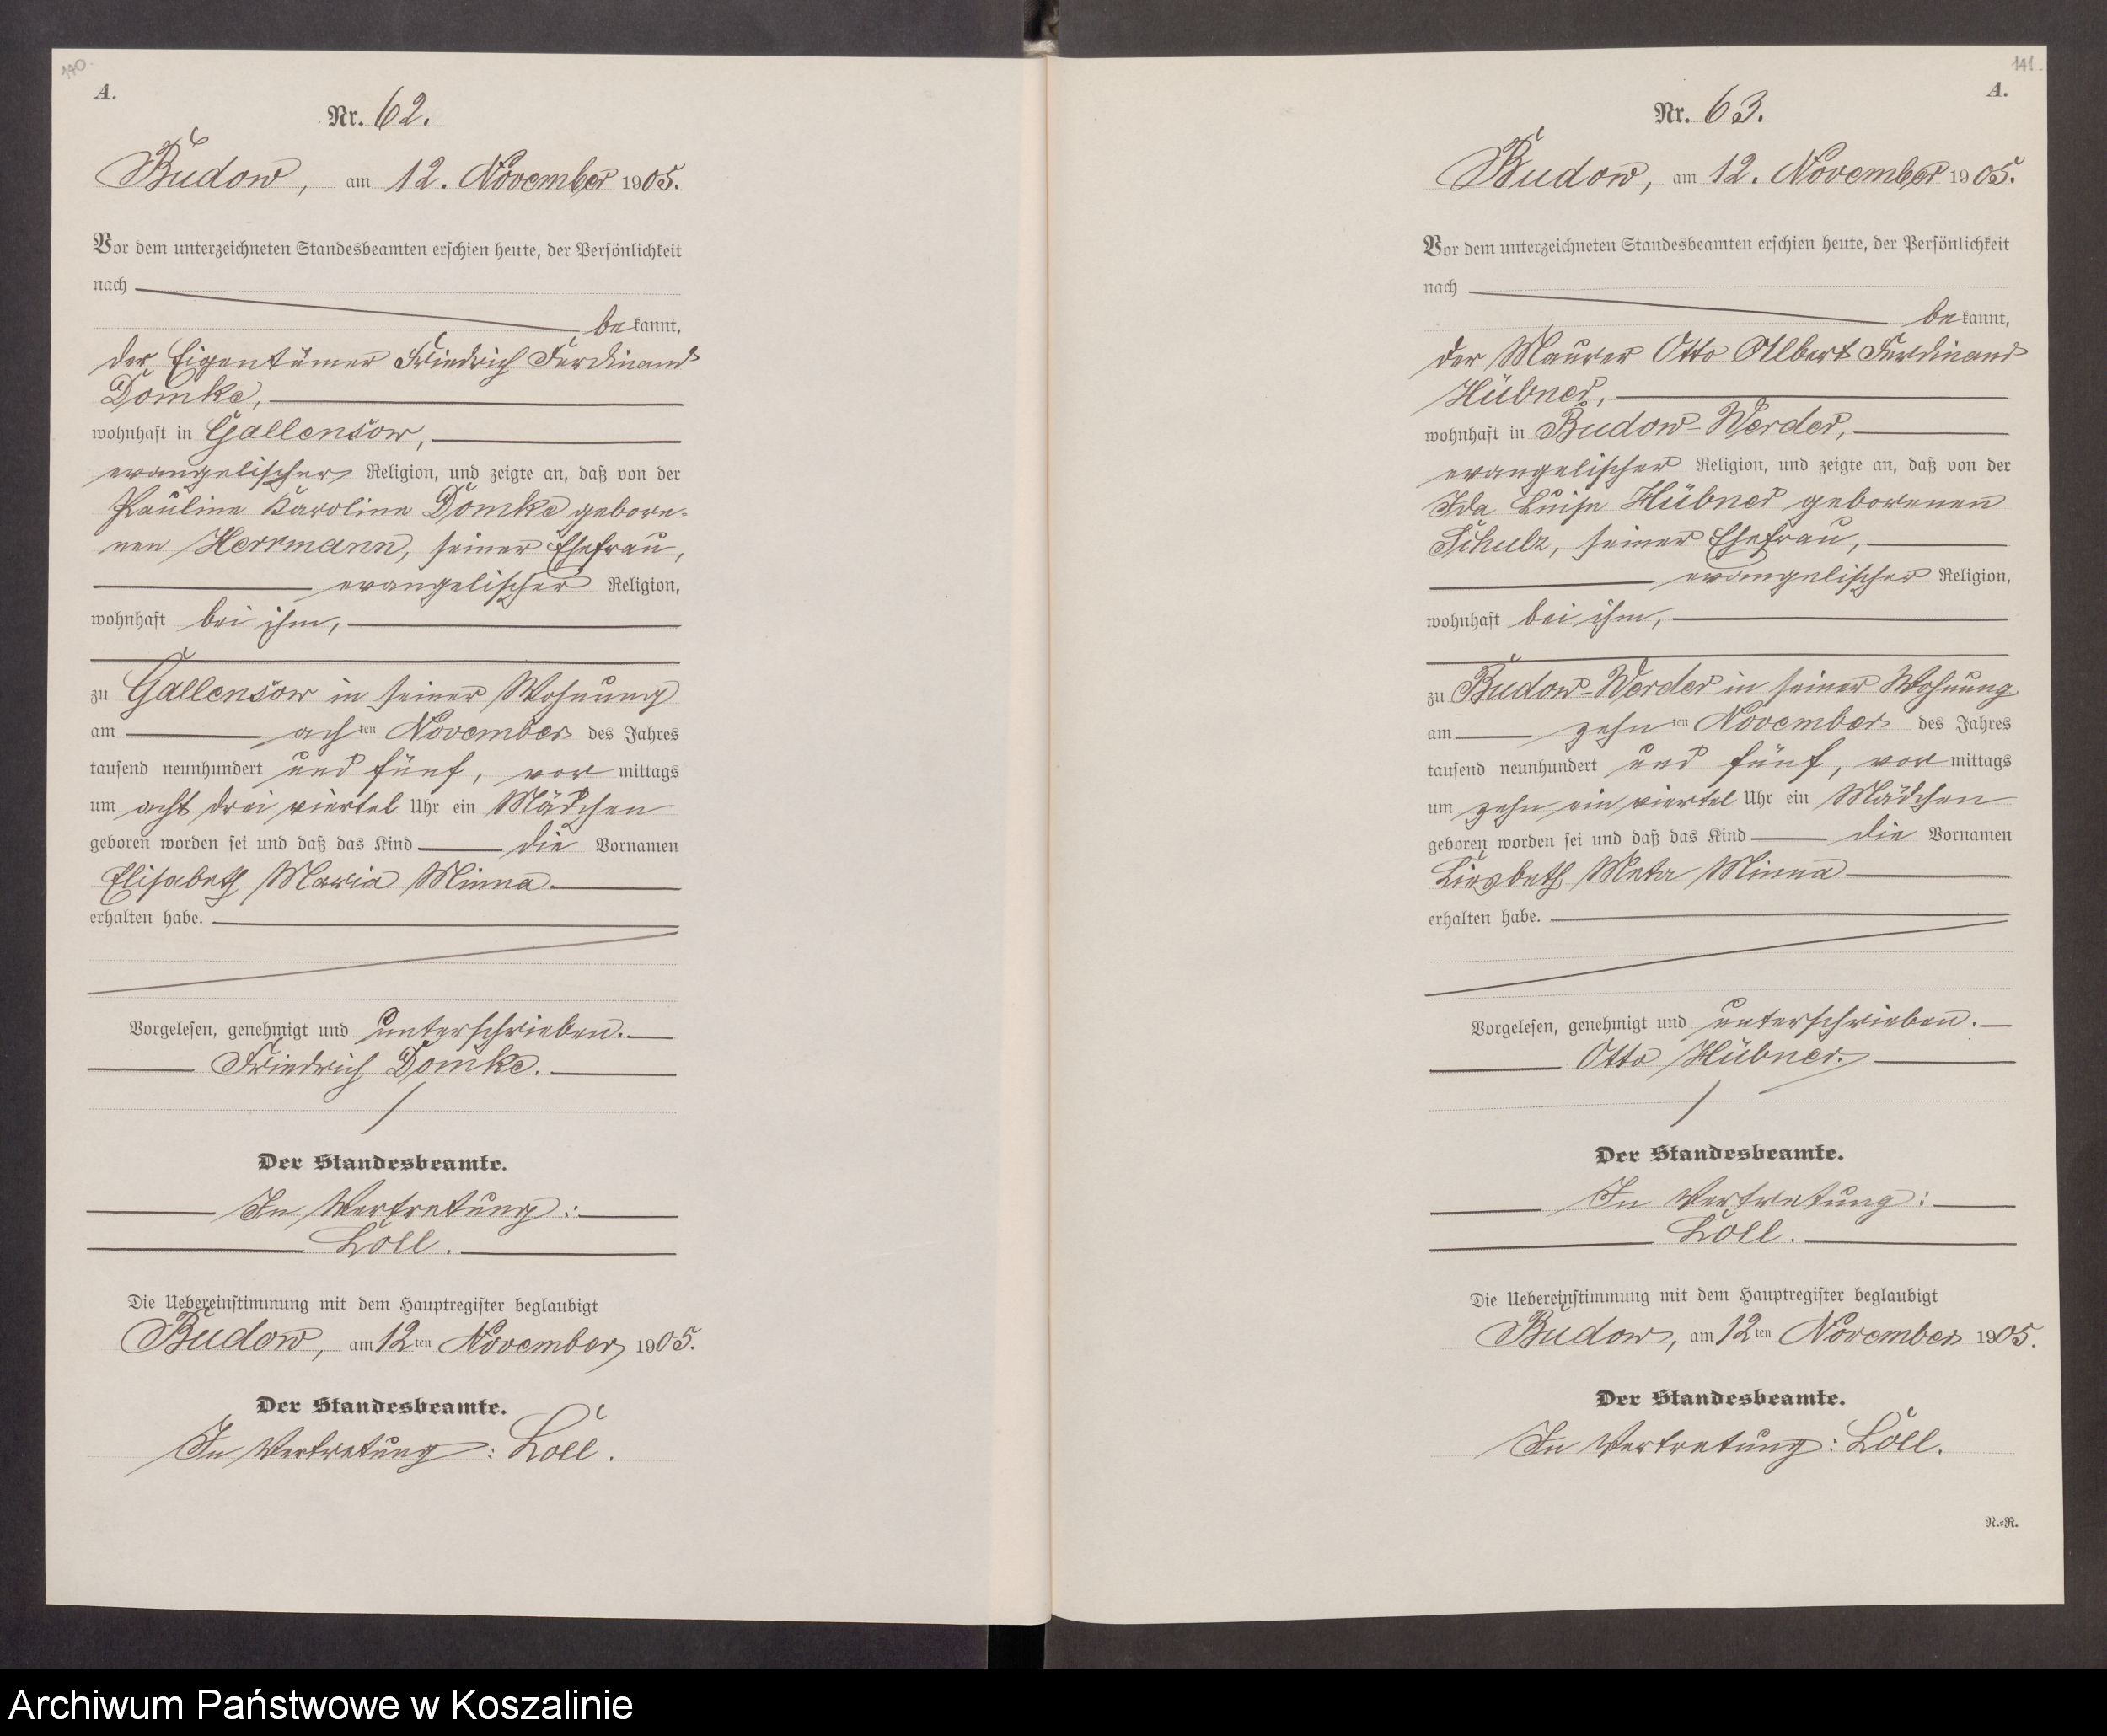 140.
A.
Nr. 62.
Budow, am 12. November 1905.
Vor dem unterzeichneten Standesbeamten erschien heute, der Persönlichkeit
nach
bekannt,
der Eigentümer Friedrich Ferdinand
Domke,
wohnhaft in Gallensow,
evangelischer Religion, und zeigte an, daß von der
Pauline Karoline Domke gebore-
nen Herrmann, seiner Ehefrau,
evangelischer Religion,
wohnhaft bei ihm,
zu Gallensow in seiner Wohnung
am achten November des Jahres
tausend neunhundert und fünf, vormittags
um acht drei viertel Uhr ein Mädchen
geboren worden sei und daß das Kind die Vornamen
Elisabeth Maria Minna
erhalten habe.
Vorgelesen, genehmigt und unterschrieben.
Friedrich Domke.
Der Standesbeamte.
In Vertretung:
Loll.
Die Uebereinstimmung mit dem Hauptregister beglaubigt
Budow, am 12ten November 1905.
Der Standesbeamte.
In Vertretung: Loll.
141.
A.
Nr. 63.
Budow, am 12. November 1905.
Vor dem unterzeichneten Standesbeamten erschien heute, der Persönlichkeit
nach
bekannt,
der Maurer Otto Albert Ferdinand
Hübner,
wohnhaft in Budow-Werder,
evangelischer Religion, und zeigte an, daß von der
Ida Luise Hübner geborenen
Schulz, seiner Ehefrau,
evangelischer Religion,
wohnhaft bei ihm,
zu Budow-Werder in seiner Wohnung
am zehnten November des Jahres
tausend neunhundert und fünf, vormittags
um zehn ein viertel Uhr ein Mädchen
geboren worden sei und daß das Kind die Vornamen
Liesbeth Meta Minna
erhalten habe.
Vorgelesen, genehmigt und unterschrieben.
Otto Hübner.
Der Standesbeamte.
In Vertretung:
Loll.
Die Uebereinstimmung mit dem Hauptregister beglaubigt
Budow, am 12ten November 1905.
Der Standesbeamte.
In Vertretung: Loll.
N.=R.
Archiwum Państwowe w Koszalinie